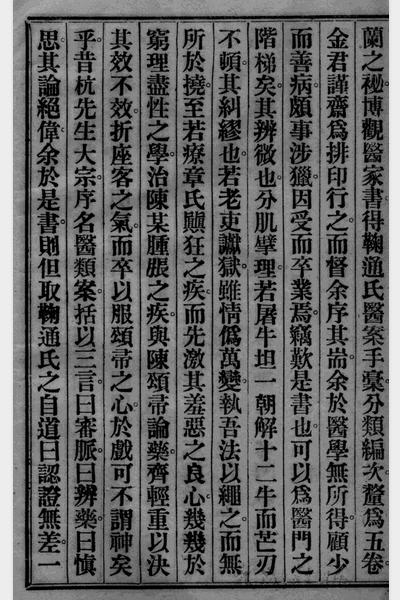 蘭之祕博觀醫家書得鞠通氏醫案手毫分類編次釐爲五卷
金君謹齋爲排印行之而督余序其耑余於醫學無所得顧少
而善病頗事涉獵因受而卒業焉竊歎是書也可以爲醫門之
階梯矣其辨微也分肌擘理若屠牛坦一朝解十二牛而芒刃
不頓其糾繆也若老吏讞獄雖情僞萬變執吾法以繩之而無
所於撓至若療章氏顚狂之疾而先激其羞惡之良心幾幾於
窮理盡性之學治陳某腫脹之疾與陳頌帚論藥齊輕重以決
其效不效折座客之氣而卒以服頌帚之心於戲可不謂神矣
乎昔杭先生大宗序名醫類案括以三言曰審脈曰辨藥曰愼
思其論絕偉余於是書則但取鞠通氏之自道曰認證無差一